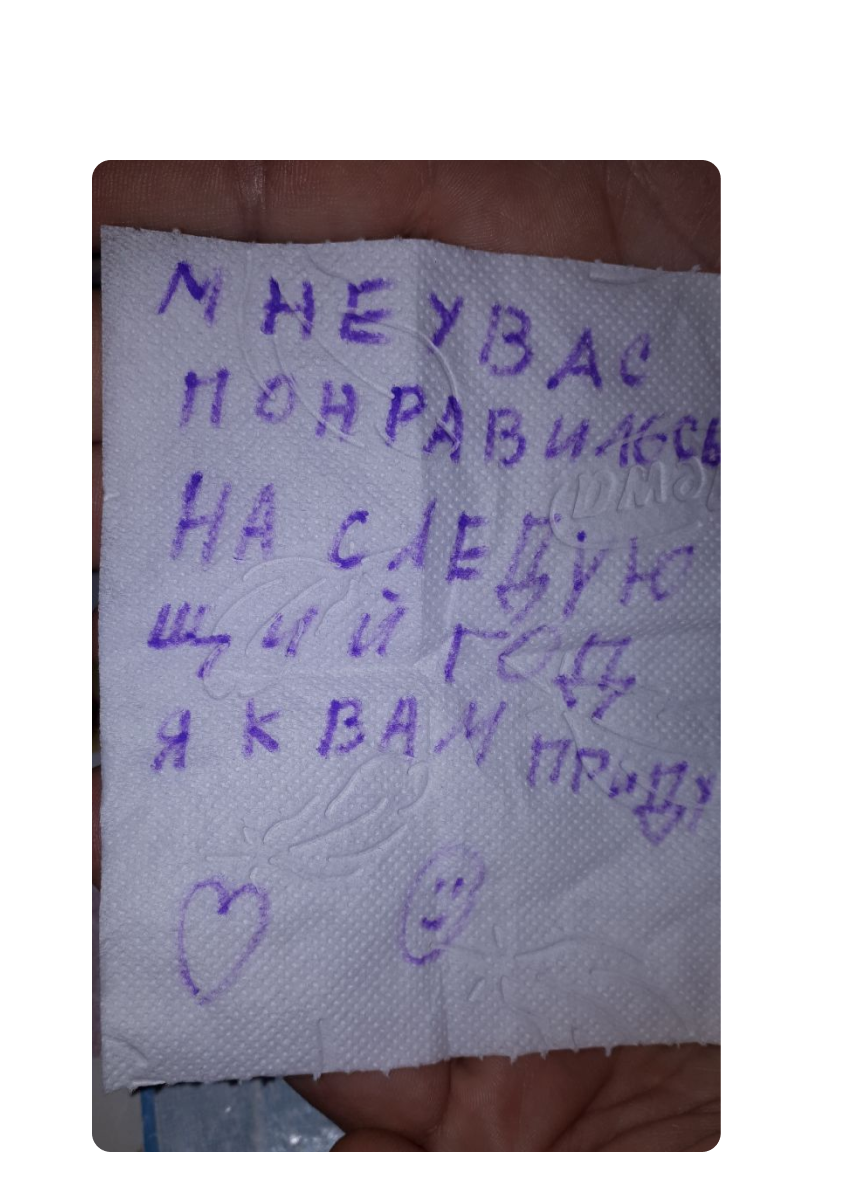 МНЕ У ВАС
ПОНРАВИЛОСЬ
НА СЛЕДУЮ
ЩИЙ ГОД
Я К ВАМ ПРИДУ